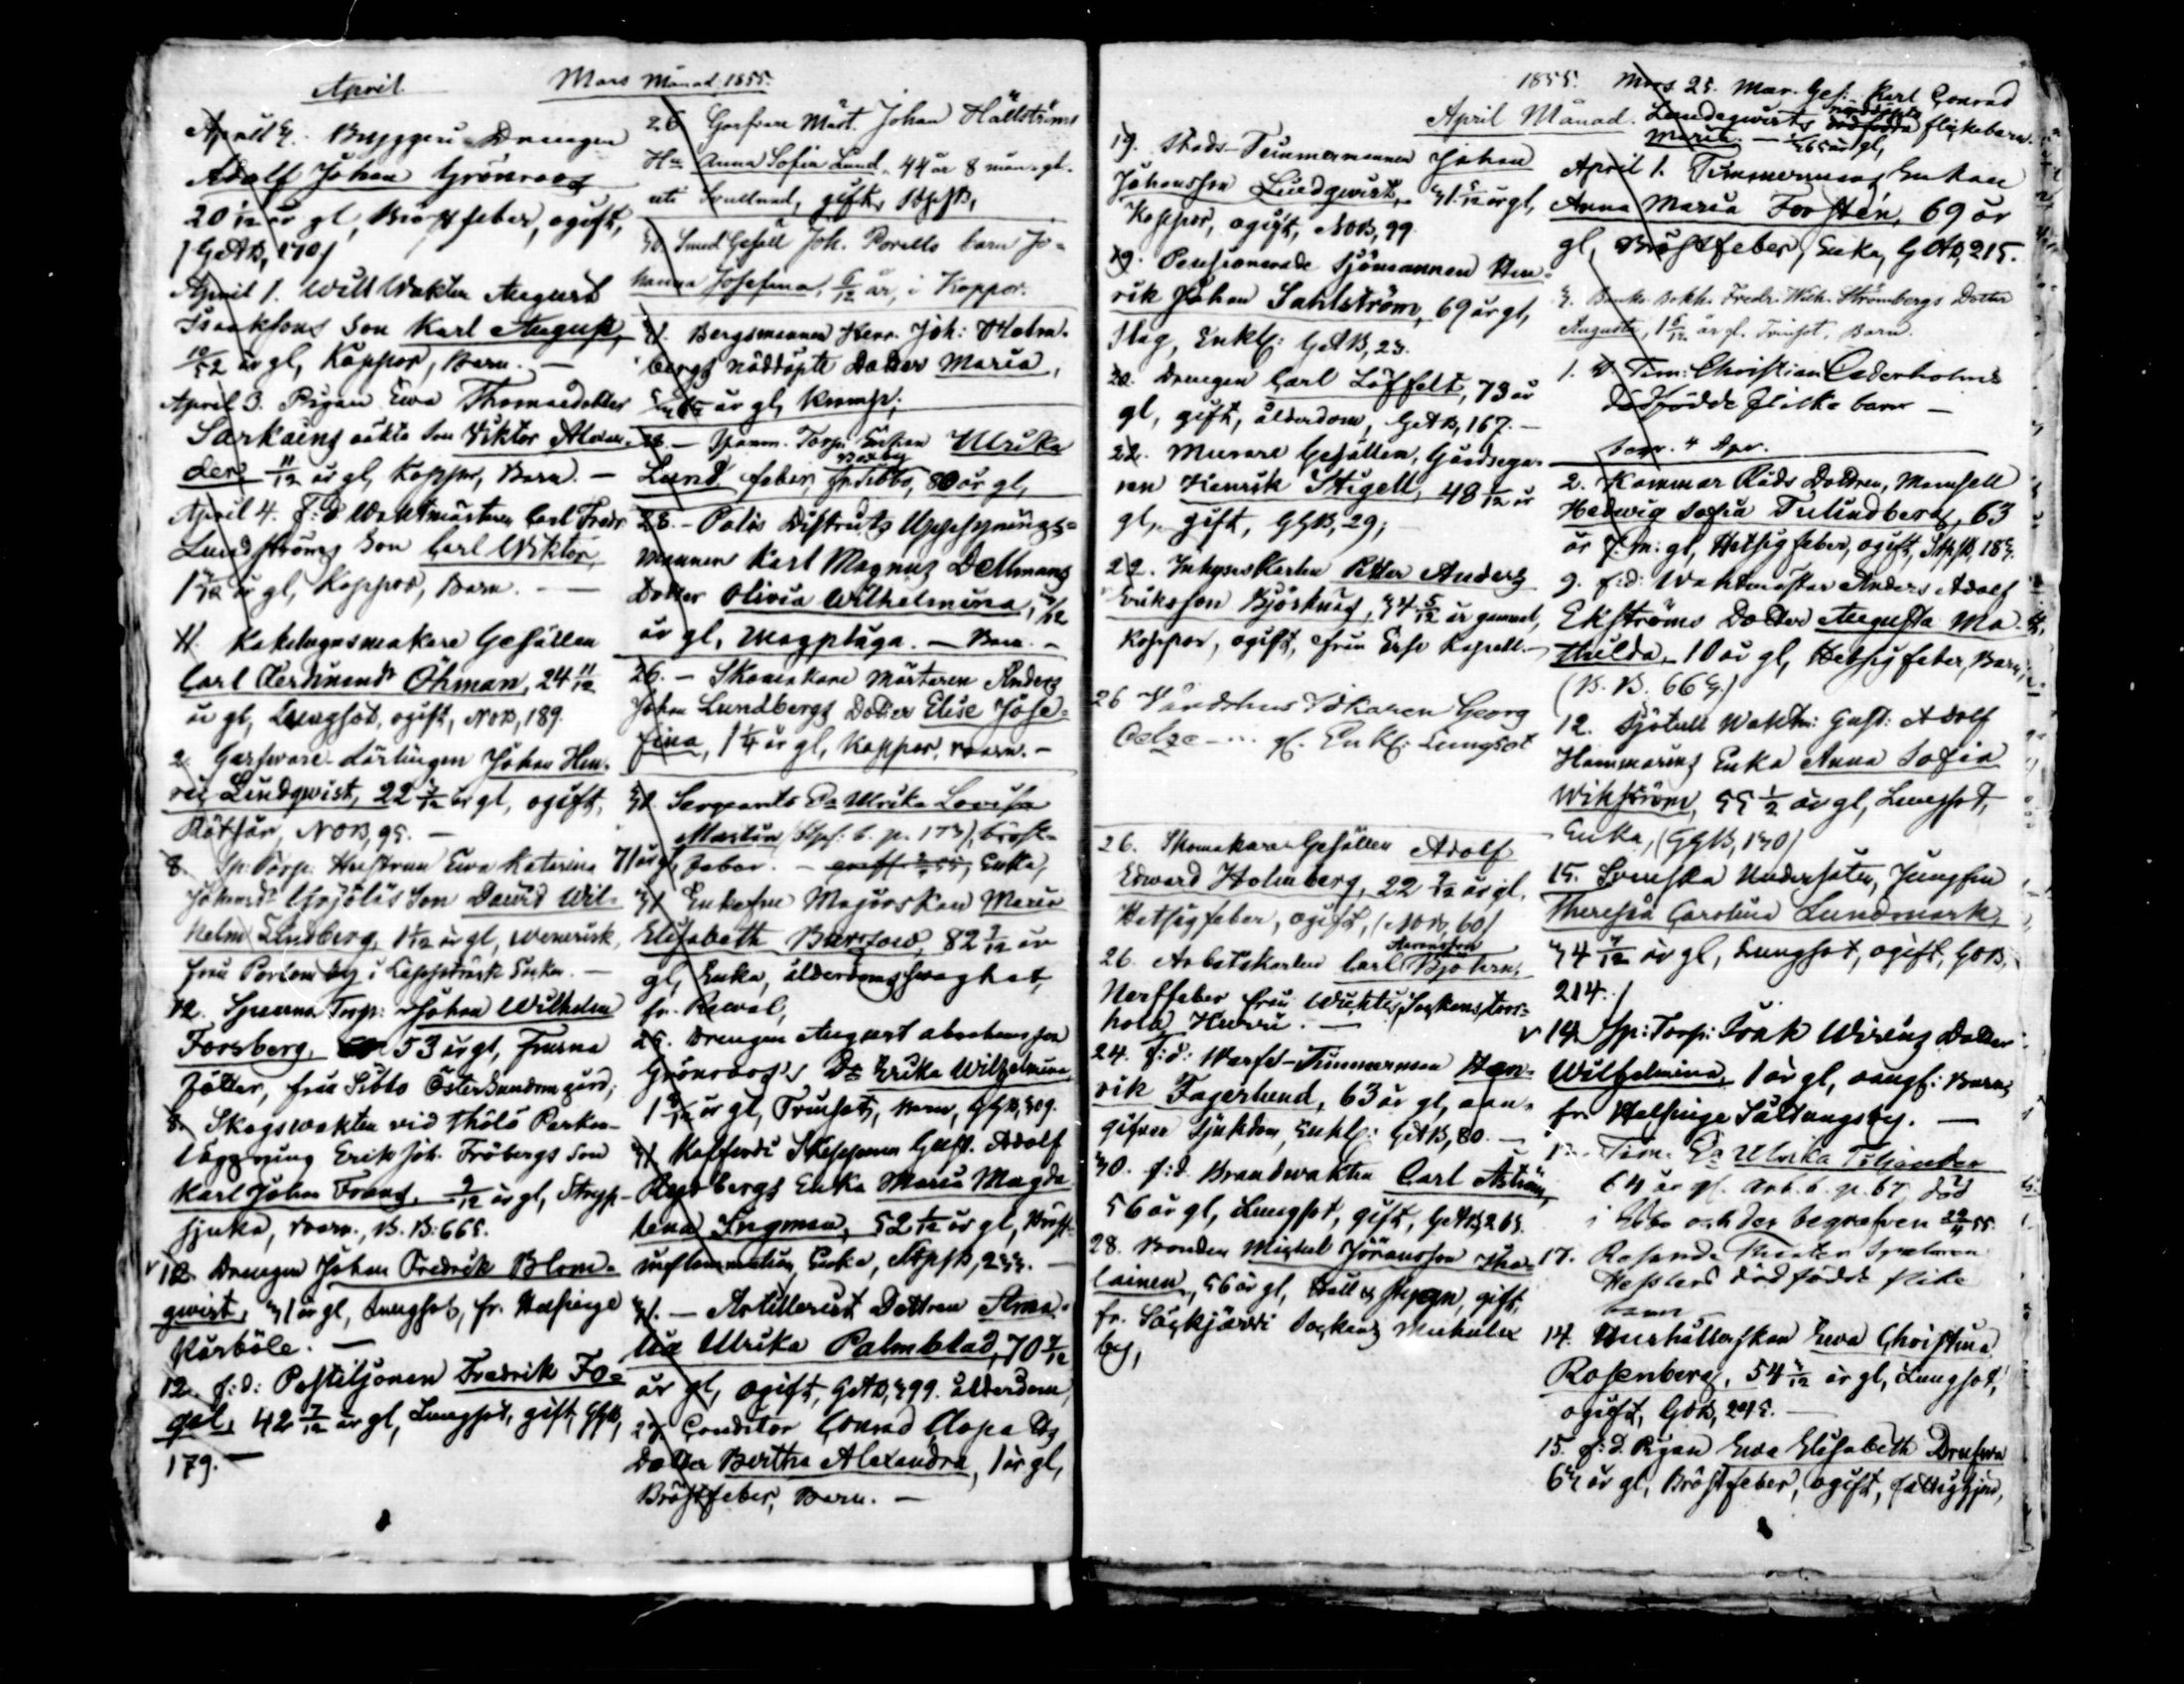 April
April 3. Bryggeri Drengen
Adolf Johan Grönroos
20 1/12 år gl, Bröstfeber, ogift,
(GAB, 170)
April 1. Augusts
Isaksons Son Karl August,
10/12 år gl, Koppor, Barn. —
April 3. Pigan Ewa Thomasdotter
Särkäinz oäkta Son Viktor Alexan-
der, 11/12 år gl, Koppor, Barn. —
April 4. f:d Waktmästaren Carl Fredr.
Lundströms Son Carl Wiktor,
år gl, Koppor, Barn. —
11. Kakelugnsmakare Gesällen
Carl Ferdinand Öhman, 24 11/12
år gl, Lungsot, ogift, NOB, 189.
2. Garfware Lärlingen Johan Hen-
ric Lindqwist, 22 år gl, ogift,
Rötfeber, NOB, 95. —
8. Sp: Torp: Hustrun Ewa Katarina
Son David Wil-
helm Lindberg, 1 1/12 år gl, Wenerisk,
från Pornby i Socken. —
12. Torp: Johan Wilhelm
Forsberg, 53 år gl,
från Sibbo Östersundom gård;
8. Skogswakten vid Thölö Parken-
läggning Erik Joh. Fröbergs Son
Karl Johan Frans, 9/12 år gl, Stryp-
sjuka, Barn, B. B. 665.
12. Drengen Johan Fredrik Blom-
qwist, 31 år gl, Lungsot, fr. Helsinge
Kårböle. —
12. f:d: Postiljonen Fredrik Fo-
gel, 42 7/12 år gl, Lungsot, gift, GGB,
179. —
Mars Månad 1855.
26 Garfvare Mäst. Johan Hällströms
Hu Anna Sofia Lund, 44 år 8 mån. gl.
gift, StpB,
30. Smed Gesäll Joh. Porells barn Jo-
hanna Josefina, 6/12 år, i Koppor.
31. Bergsmannen Henr. Joh: Holm-
bergs nöddöpte Dotter Maria,
år gl, Kramp;
28. — Torp: Enkan Ulrika
Lund, feber, fr Sibbo, Boxby, 80 år gl,
28. — Polis Distrikts Uppsynings-
mannen Karl Magnus Dellmans
Dotter Olivia Wilhelmina,
år gl, Magplåga. — Barn. —
26. — Skomakare Mästaren Anders
Johan Lundbergs Dotter Elise Jose-
fina, 1 1/4 år gl, Koppor, Barn. —
31. Sergeants Ea Ulrika Lovisa
Martin (Stpf. b. p. 173), bröst-
71 år gl, feber. — Enka,
31 Enkefru Majorskan Maria
Elisabeth Burtzow, 82 år
gl, Enka, ålderdomssvaghet,
fr. Reval,
25. Drengen August Abrahamsson
Grönroos's Dr Erika Wilhelmina,
år gl, Trinsot, Barn, GGB, 309.
31 Kofferdi Skepparen Gust. Adolf
Rosbergs Enka Maria Magda-
lena Ingman, 52 1/12 år gl, Bröst-
inflammation, Enka, StpB, 233. —
31. — Artillerist Dottren Ama-
lia Ulrika Palmblad, 70 7/12
år gl, ogift, GAB, 399. ålderdom,
27 Conditor Conrad Clopatts
Dotter Bertha Alexandra, 1 år gl,
Bröstfeber, Barn. —
1855.
April Månad.
19. Stads-Timmermannen Johan
Johansson Lindqwist, 31 5/12 år gl,
Koppor, ogift, NOB, 99.
19. Pensionerade Sjömannen Hen-
rik Johan Sahlström, 69 år gl,
Slag, Enkl: GAB, 23.
20. Drengen Carl Löffelt, 73 år
gl, gift, ålderdom, GAB, 167. —
22. Murare Gesällen, Gårdsega-
ren Henrik Stigell, 48 1/12 år
gl, gift, GGB, 29;
22. Inhyses Karlen Petter Anders
Eriksson Björknäs, 34 5/12 år gammal,
Koppor, ogift, från Esbo Kapell. —
26 Värdshus Idkaren Georg
Oelze - .. gl. Enkl: Lungsot
26. Skomakare Gesällen Adolf
Edward Holmberg, 22 år gl,
Hetsigfeber, ogift, (NOB, 60)
26. Arbetskarlen Carl Aaronsson Björkm,
Nerffeber från Wichtis Sockens
Hurru. —
24. f:d: Warfs-Timmerman Hen-
rik Fagerlund, 63 år gl, oan-
gifven Sjukdom, Enkl: GAB, 80. —
30. f:d. Brandwakten Carl Åström,
56 år gl, Lungsot, gift, GAB, 265.
28. Bonden Michel Jöransson Iha-
lainen, 56 år gl, Håll & Stygn, gift,
fr. Säkkjärvi Sockens Mickula
by,
Mars 25. Mur. Ges: Karl Conrad
Lindqwists nöddöpta dödfödda flickebarn.
Maria — år gl,
April 1. Timmermans Enkan
Anna Maria Forstén, 69 år
gl, Bröstfeber, Enka, GAB, 215.
3. Bank. Bokh. Fredr. Wilh. Strömbergs Dotter
Augusta, 1 6/12 år gl. Trinsot. Barn.
1. Tim: Christian Cederholms
dödfödde flicka barn —
begr. 4 Apr.
2. Kammar Råds Dottren, Mamsell
Hedwig Sofia Tulindberg, 63
år 7 m: gl, Hetsigfeber, ogift, StpB, 183.
9. f:d: Waktmästar Anders Adolf
Ekströms Dotter Augusta Ma-
thilda, 10 år gl, Hetsigfeber, Barn,
(B. B. 663.)
12. Sjötull Waktm: Gust: Adolf
Hammarins Enka Anna Sofia
Wikström, 55 1/2 år gl, Lungsot,
Enka, (GGB, 130)
15. Svenska Undersåten, Jungfru
Theresia Carolina Lundmark,
34 år gl, Lungsot, ogift, GOB,
214.
14 Sp: Torp: Isak Wirens Dotter
Wilhelmina, 1 år gl, oangf: Barn,
fr. Helsinge Sättungsby. —
Tim. Ea Ulrika Tiljander
64 år gl. Arb. b. p. 67, död
i Åbo och der begrafven 55.
17. Resande Theater
Hesslers dödfödde flicke
barn
14. Hushållerskan Ewa Christina
Rosenberg, 54 år gl, Lungsot,
ogift, GOB, 295. —
15. f:d. Pigan Ewa Elisabeth
63 år gl, Bröstfeber, ogift, fattighjon,